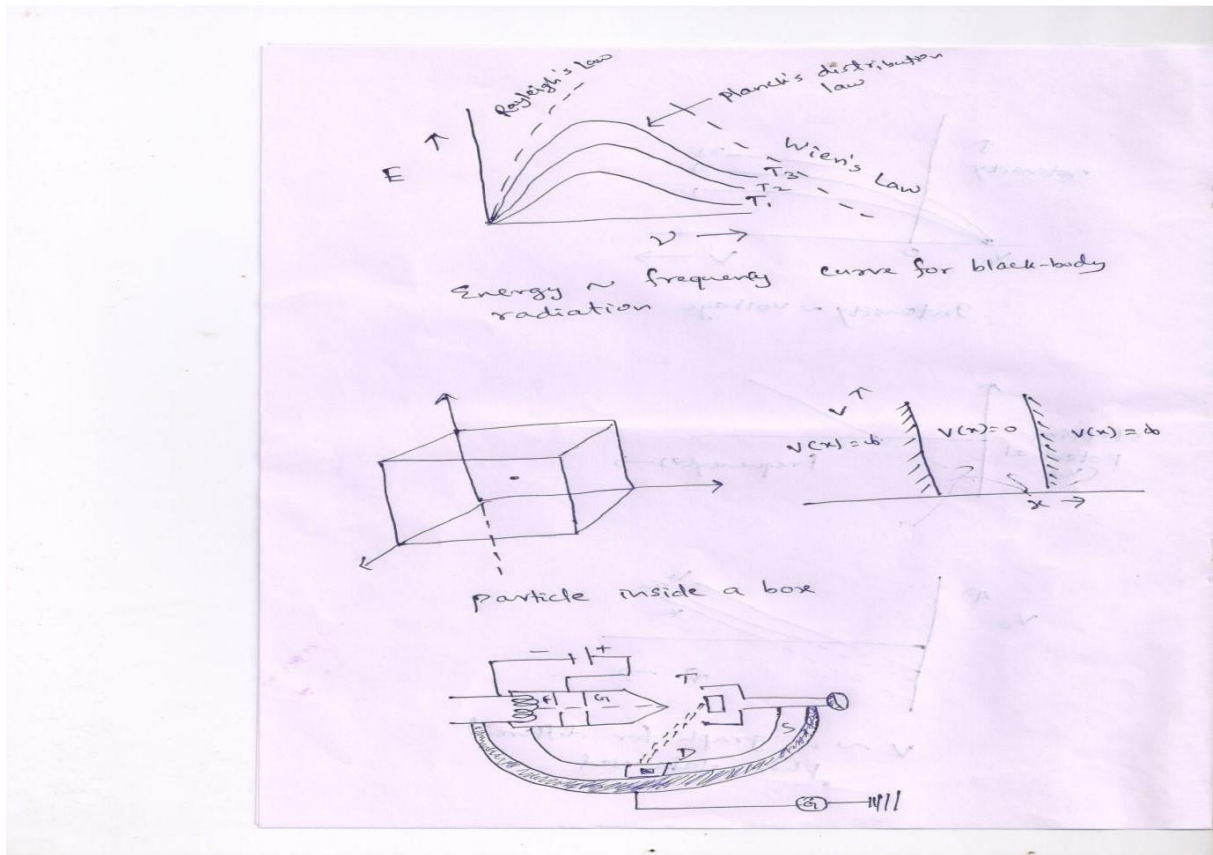 Rayleigh's Law
Planck's distribution law
Wien's Law
E
T3
T2
T1
ν →
Energy ~ frequency curve for black-body
radiation
V
V(x)=∞ V(x)=0 V(x)=∞
x →
particle inside a box
- +
F G T
S
D
G